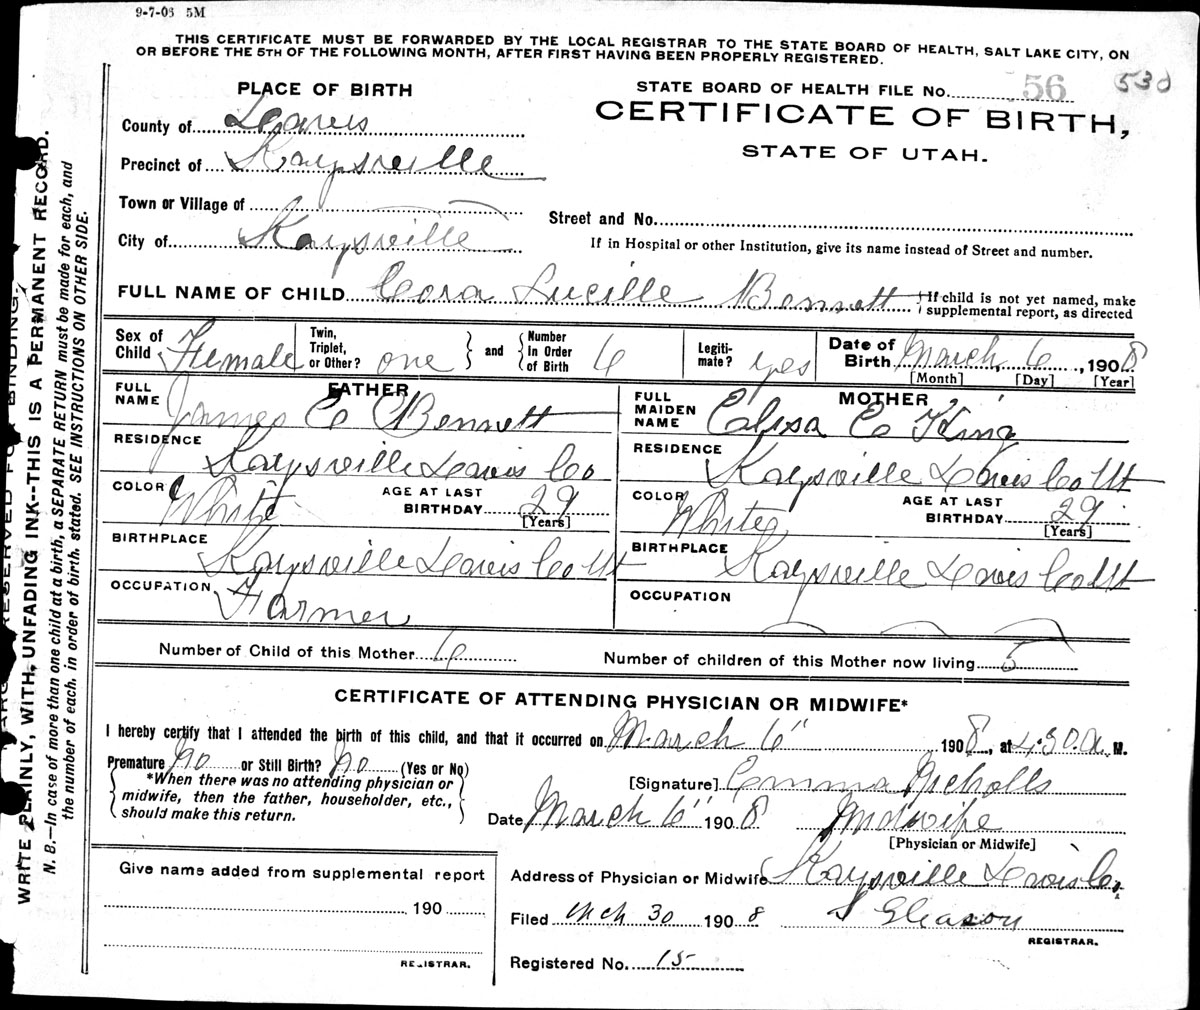 9-7-06 5M
THIS CERTIFICATE MUST BE FORWARDED BY THE LOCAL REGISTRAR TO THE STATE BOARD OF HEALTH, SALT LAKE CITY, ON
OR BEFORE THE 5TH OF THE FOLLOWING MONTH, AFTER FIRST HAVING BEEN PROPERLY REGISTERED.
PLACE OF BIRTH
STATE BOARD OF HEALTH FILE No. 56 530
CERTIFICATE OF BIRTH,
STATE OF UTAH.
County of Davis
Precinct of Kaysville
Town or Village of
Street and No.
City of Kaysville
If in Hospital or other Institution, give its name instead of Street and number.
FULL NAME OF CHILD Cora Lucille Bennett {If child is not yet named, make supplemental report, as directed
Sex of Child Female Twin, Triplet, or Other? one and Number In Order of Birth 6 Legiti-mate? yes Date of Birth March 6, 1908
[Month] [Day] [Year]
FATHER
FULL NAME James E Bennett
RESIDENCE Kaysville Davis Co
COLOR White AGE AT LAST BIRTHDAY 29 [Years]
BIRTHPLACE Kaysville Davis Co Ut
OCCUPATION Farmer
MOTHER
FULL MAIDEN NAME Elisa E King
RESIDENCE Kaysville Davis Co Ut
COLOR White AGE AT LAST BIRTHDAY 29 [Years]
BIRTHPLACE Kaysville Davis Co Ut
OCCUPATION
Number of Child of this Mother 6 Number of children of this Mother now living 5
CERTIFICATE OF ATTENDING PHYSICIAN OR MIDWIFE*
I hereby certify that I attended the birth of this child, and that it occurred on March 6" 1908, at 4:30 a. M.
Premature No or Still Birth? No (Yes or No)
*When there was no attending physician or
midwife, then the father, householder, etc.,
should make this return.
[Signature] Emma Nicholls
Date March 6" 1908 Midwife
[Physician or Midwife]
Address of Physician or Midwife Kaysville Davis Co,
Give name added from supplemental report
190
REGISTRAR.
Filed Mch 30 1908 S Gleason
REGISTRAR.
Registered No. 15
WRITE PLAINLY, WITH UNFADING INK--THIS IS A PERMANENT RECORD.
N. B.--In case of more than one child at a birth, a SEPARATE RETURN must be made for each, and
the number of each, in order of birth, stated. SEE INSTRUCTIONS ON OTHER SIDE.